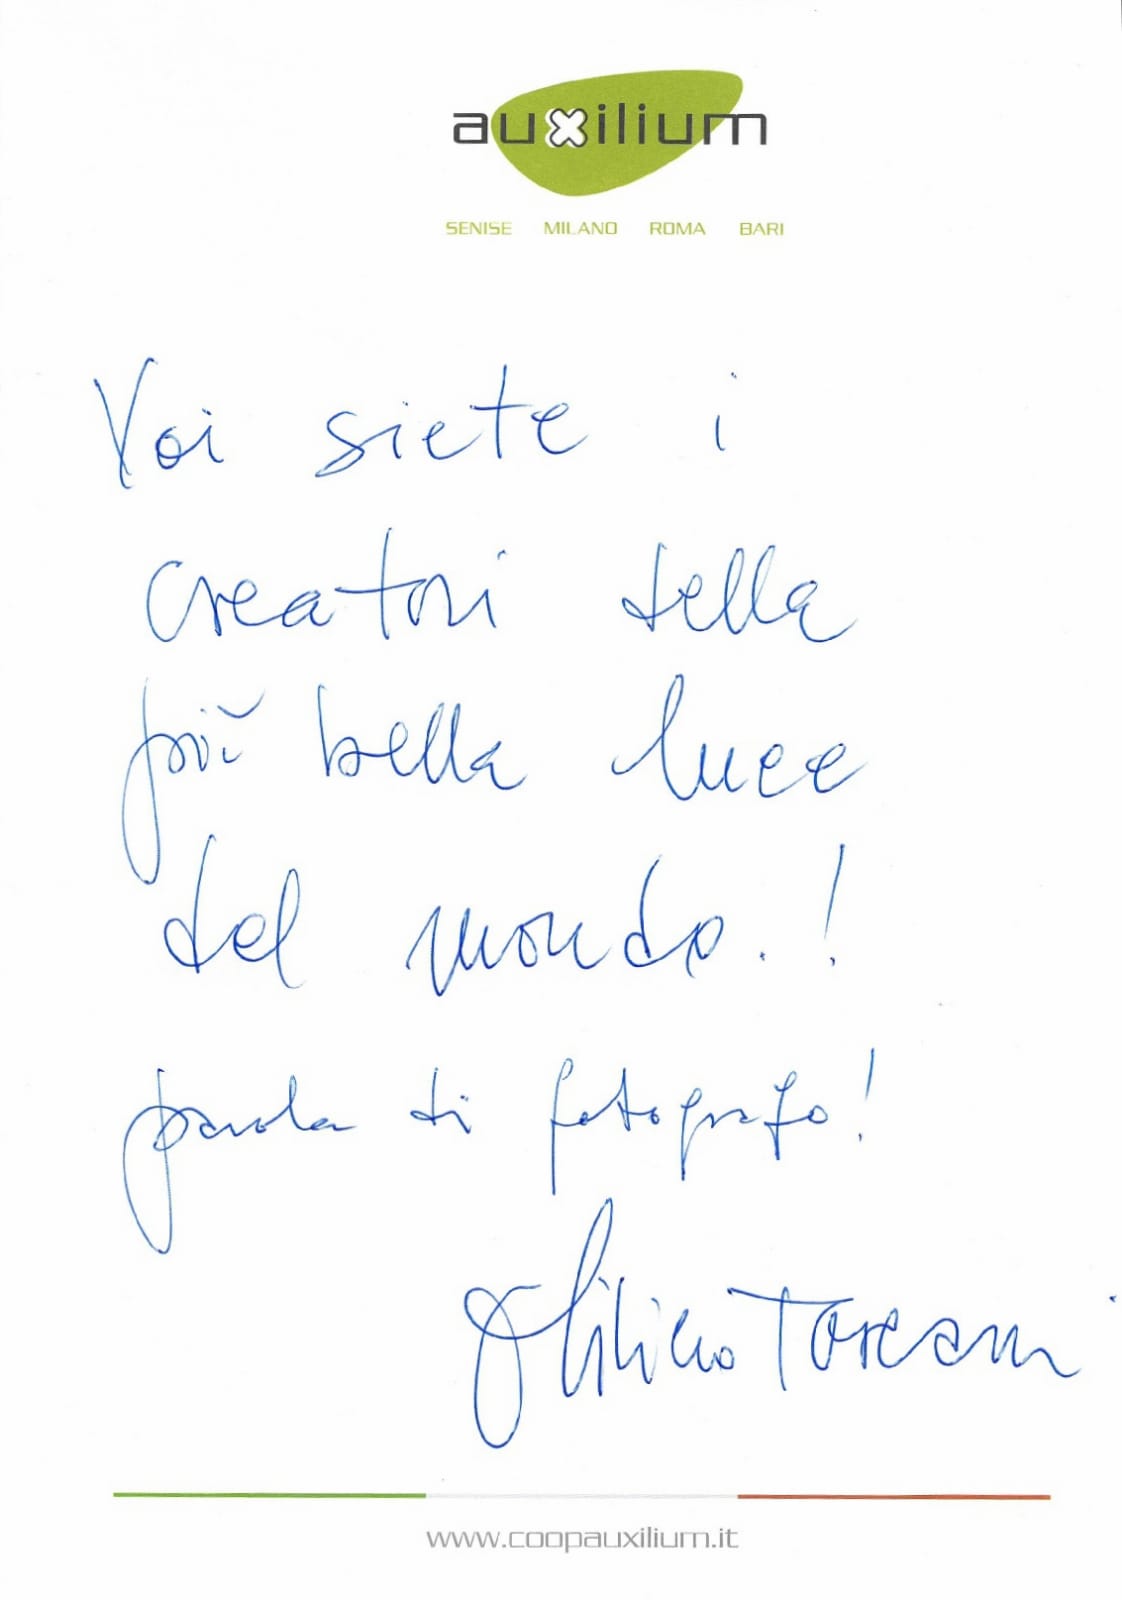 auxilium
SENISE MILANO ROMA BARI
Voi siete i
creatori della
più bella luce
del mondo.!
parola di fotografo!
Oliviero Toscani
www.coopauxilium.it